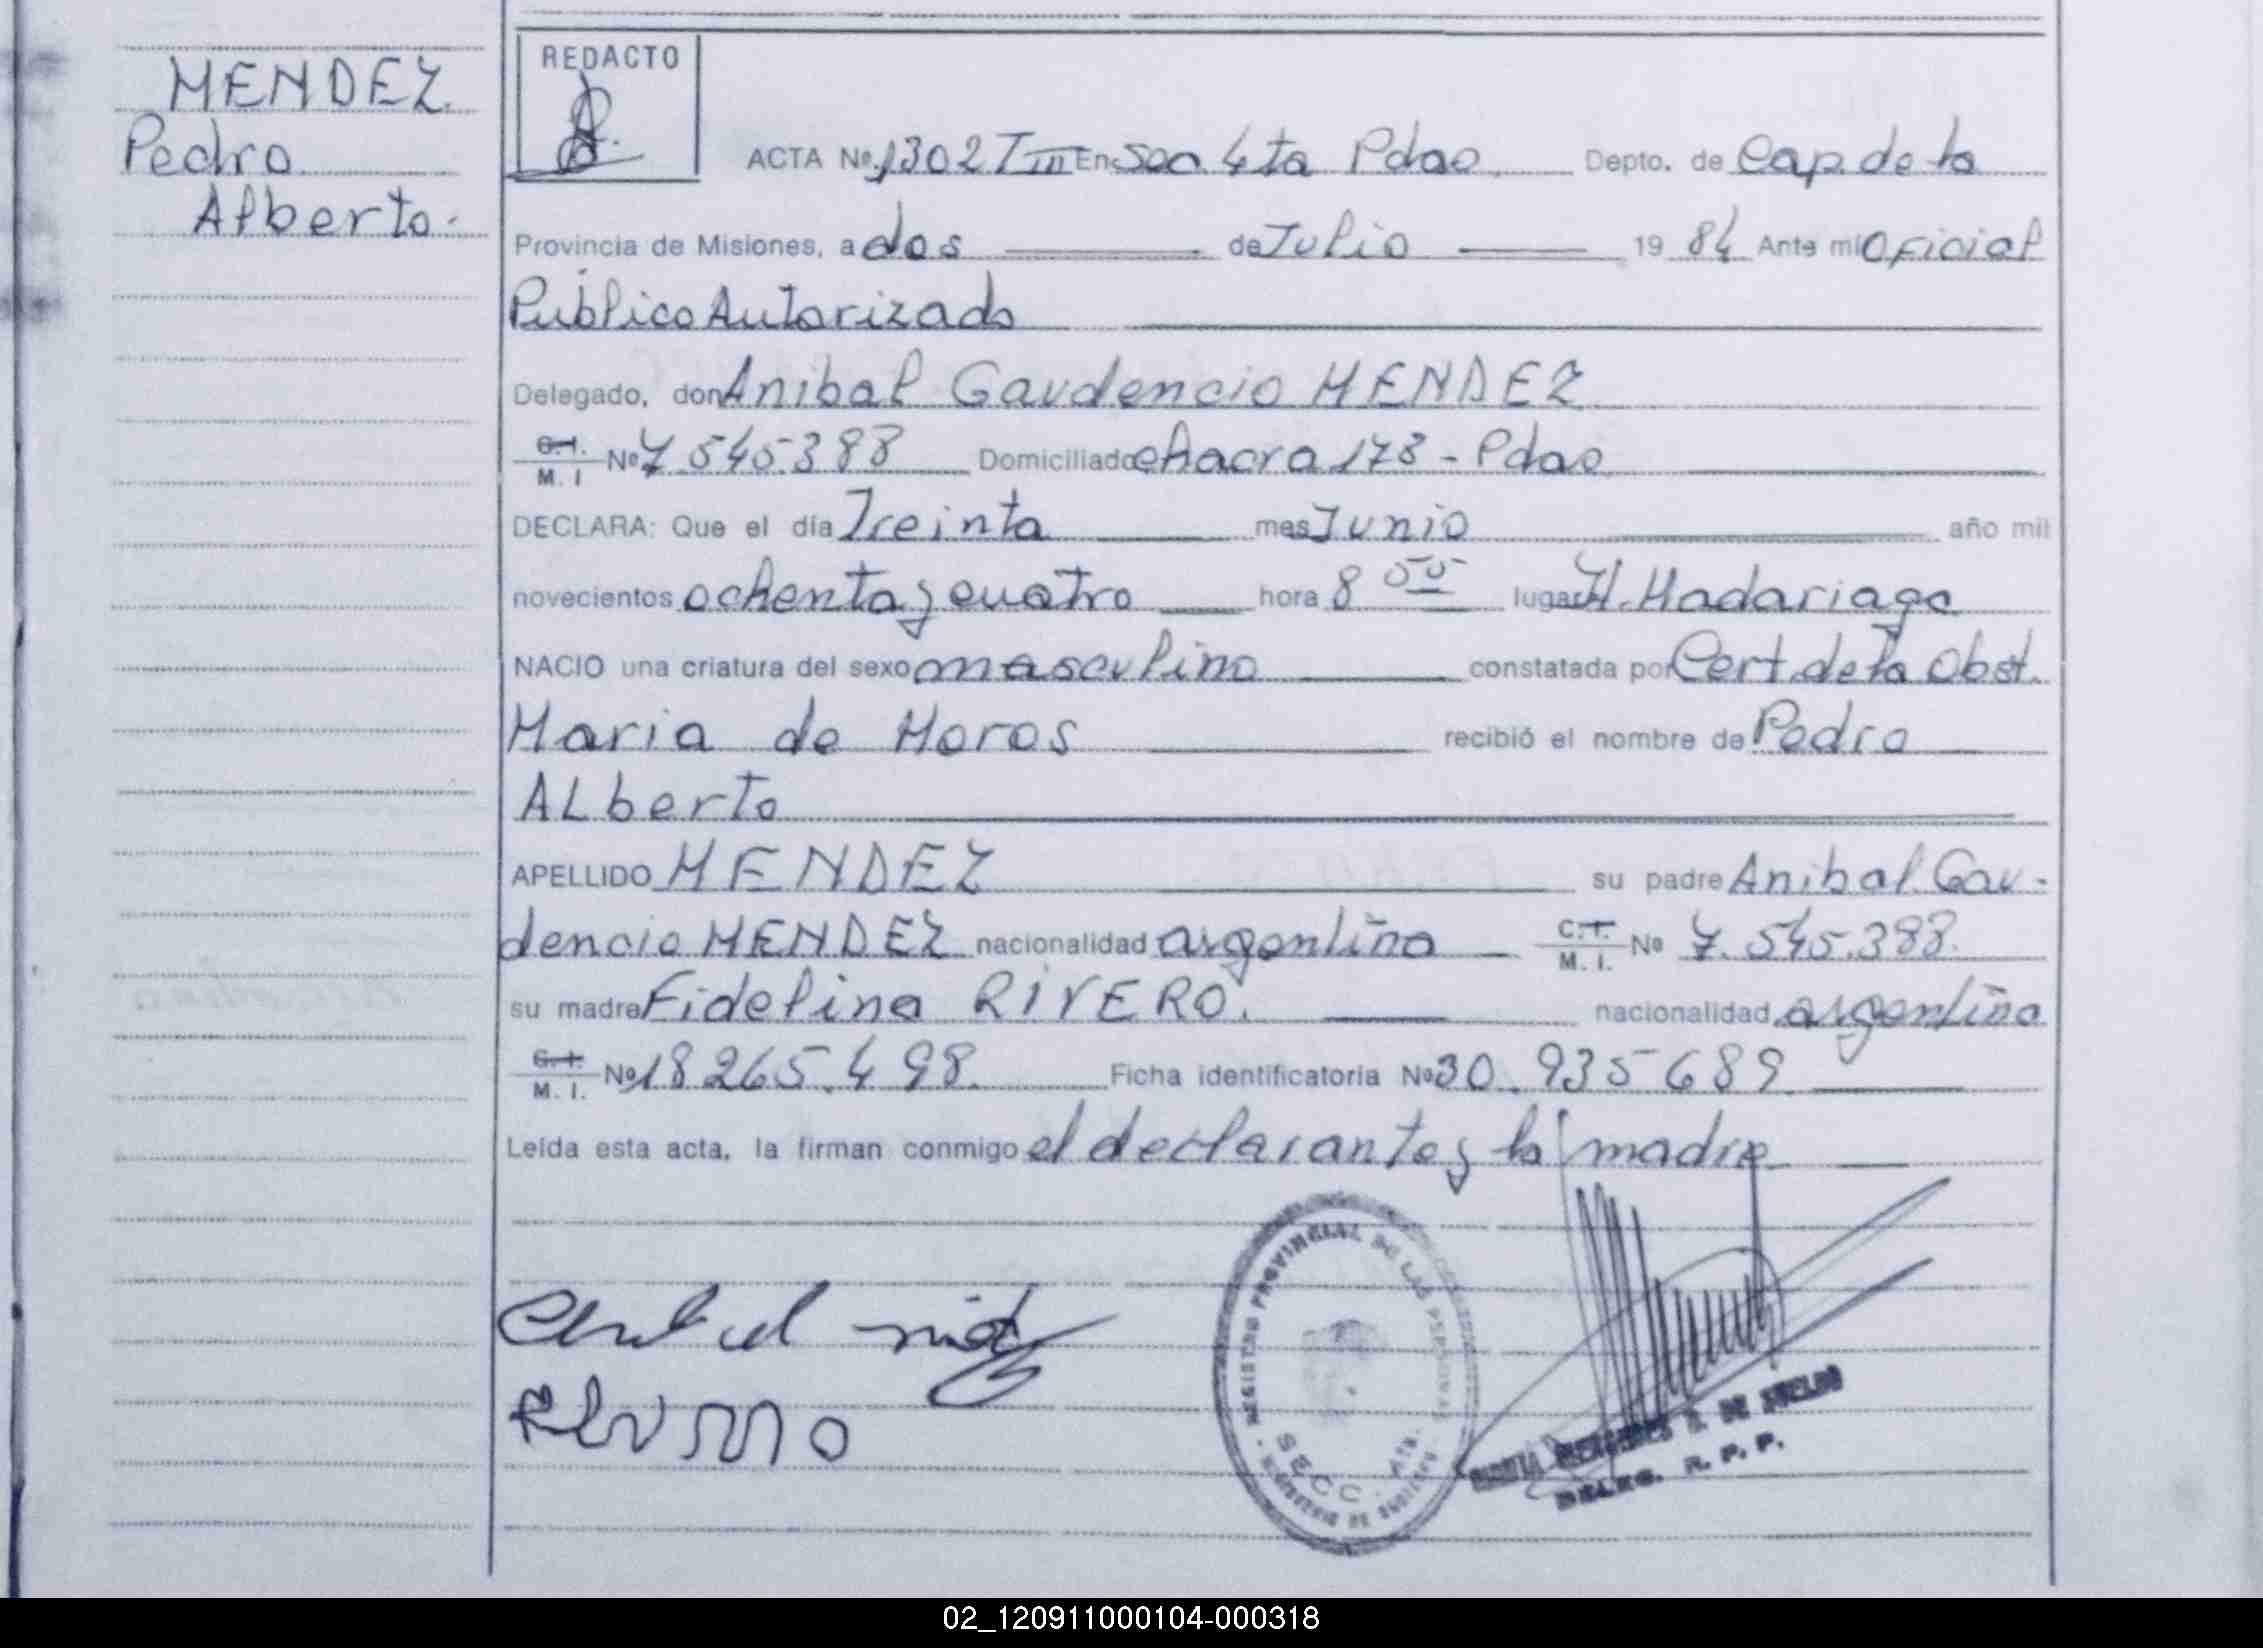 MENDEZ
Pedro
Alberto.
REDACTO
ACTA Nº 1302 T III En Sec. 4ta Pdas. Depto. de Cap. de la
Provincia de Misiones, a dos de Julio 19 84 Ante mi Oficial
Público Autorizado
Delegado, don Anibal Gaudencio MENDEZ
C.I. M. I Nº 7.545.388 Domiciliado chacra 178 - Pdas
DECLARA: Que el día Treinta mes Junio año mil
novecientos ochenta y cuatro hora 8 55 lugar H. Madariaga
NACIO una criatura del sexo masculino constatada por Cert. de la Obst.
Maria de Moros recibió el nombre de Pedro
ALberto
APELLIDO MENDEZ su padre Anibal Gau-
dencio MENDEZ nacionalidad argentina C.I. M. I. Nº 7.545.388.
su madre Fidelina RIVERO. nacionalidad argentina
C.I. M. I. Nº 18265.498. Ficha identificatoria Nº 30.935689
Leída esta acta, la firman conmigo el declarante y la madre
REGISTRO PROVINCIAL DE LAS PERSONAS
SECC. 4TA.
DELEG. R. P. P.
02_120911000104-000318